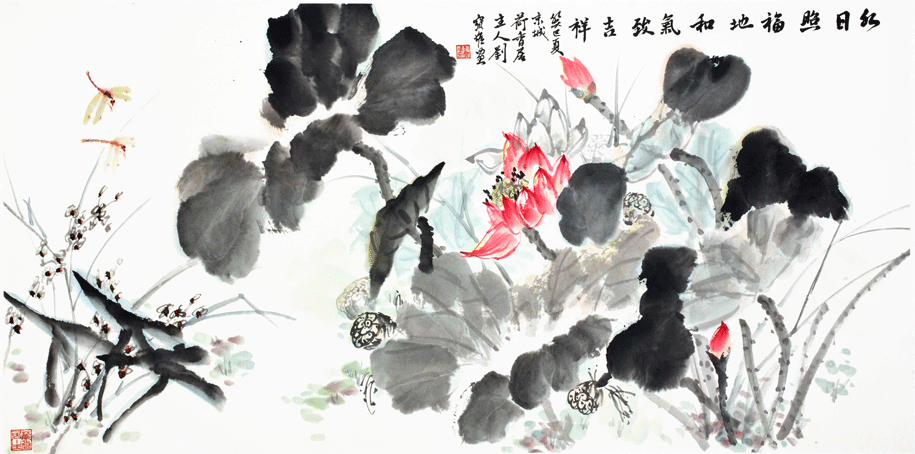 紅日照福地和氣致吉祥
癸巳夏
京城
荷香居
主人劉